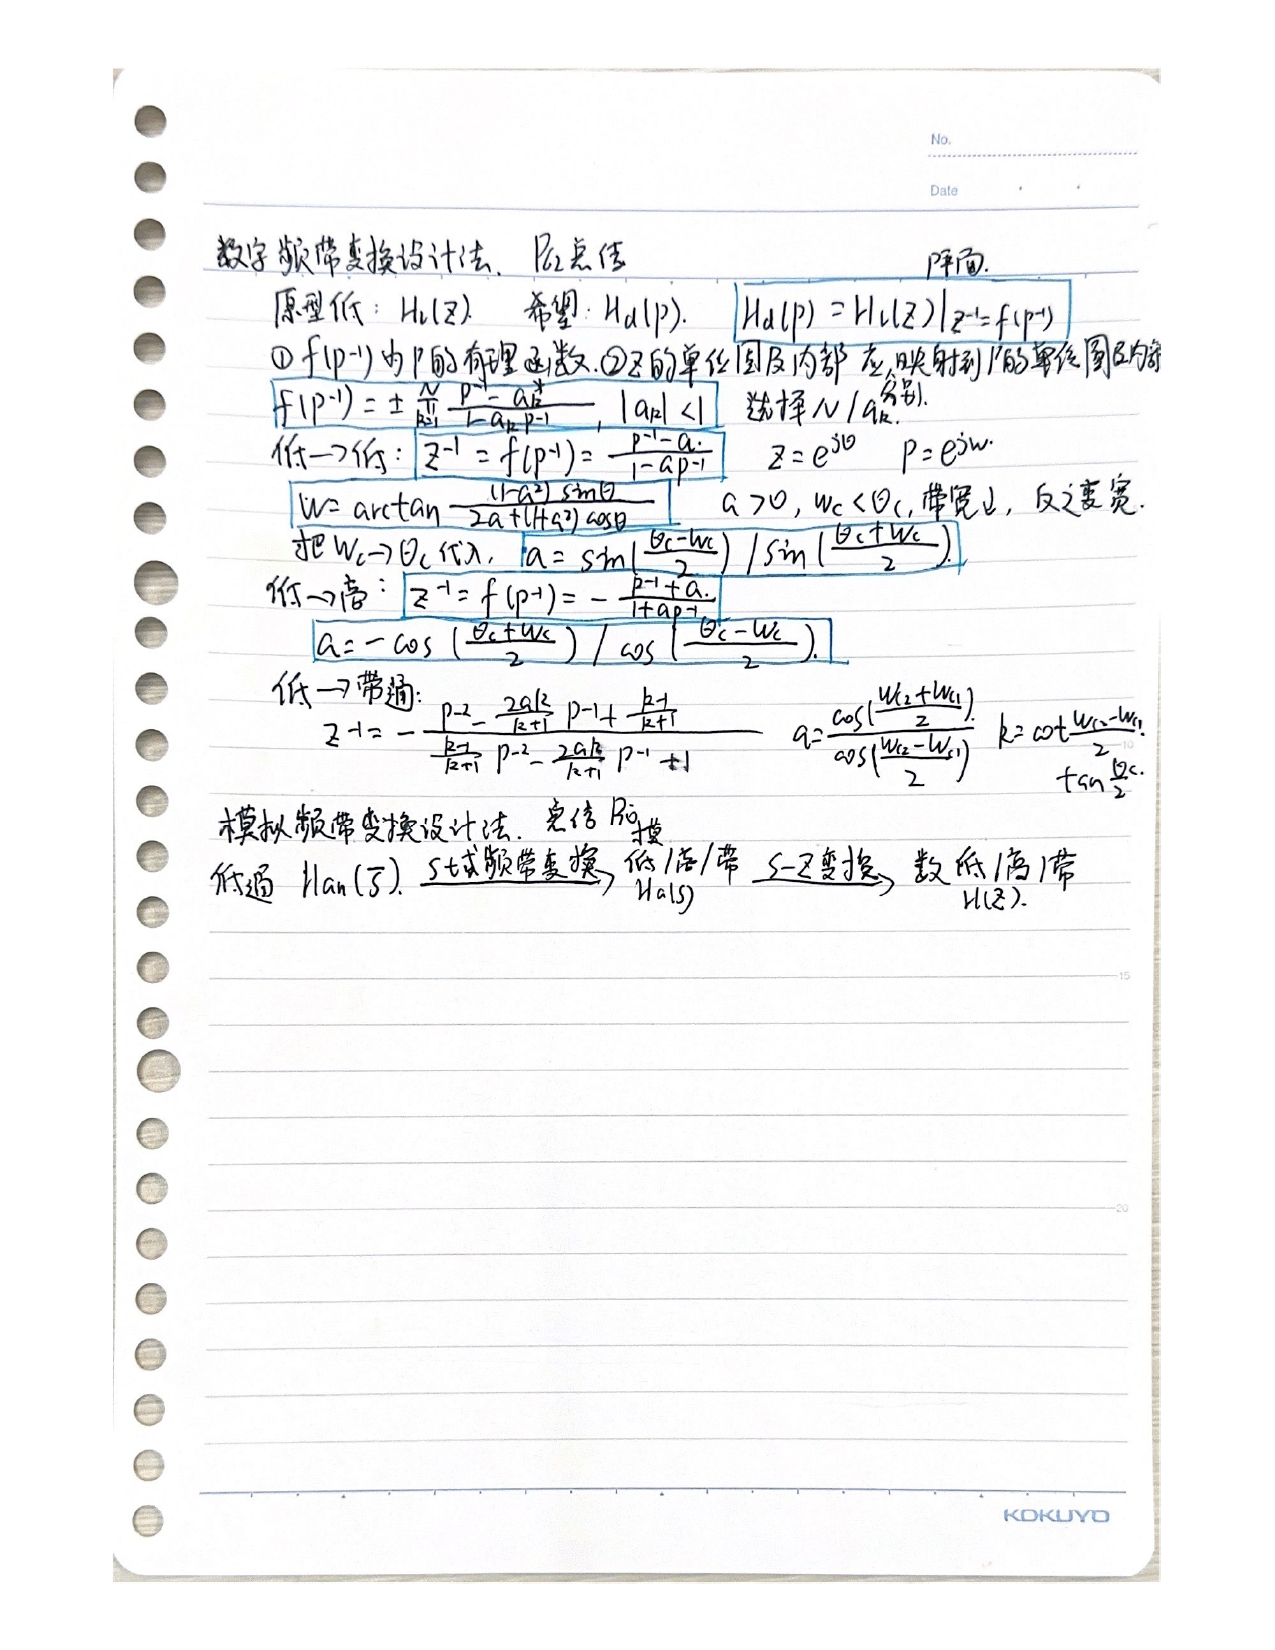 No.
Date
数字频带变换设计法. P62 总结
P平面.
原型低: HL(z). 希望: Hd(p). Hd(p) = HL(z)|z⁻¹=f(p⁻¹)
① f(p⁻¹) 为 P 的有理函数. ② Z 的单位圆及内部 应映射到 P 的单位圆及内部
f(p⁻¹) = ± ∏(k=1..N) (p⁻¹ - ak*)/(1 - ak p⁻¹), |ak| < 1 选择 N / ak 分别.
低→低: z⁻¹ = f(p⁻¹) = (p⁻¹ - a)/(1 - ap⁻¹) z = e^jθ p = e^jw.
w = arctan ((1-a²) sinθ)/(2a+(1+a²) cosθ) a > 0, wc < θc, 带宽↓, 反之变宽.
把 wc→θc 代入, a = sin((θc-wc)/2) / sin((θc+wc)/2).
低→高: z⁻¹ = f(p⁻¹) = - (p⁻¹+a)/(1+ap⁻¹)
a = -cos((θc+wc)/2) / cos((θc-wc)/2).
低→带通: z⁻¹ = - (p⁻² - (2ak/(k+1)) p⁻¹ + (k-1)/(k+1))/(((k-1)/(k+1)) p⁻² - (2ak/(k+1)) p⁻¹ + 1) a = cos((wc2+wc1)/2)/cos((wc2-wc1)/2) k = cot((wc2-wc1)/2) tan(θc/2).
模拟频带变换设计法.
模
低通 Han(s̄). 频带变换→ 低/高/带 Ha(s) s-z变换→ 数 低/高/带 H(z).
10
15
20
KOKUYO